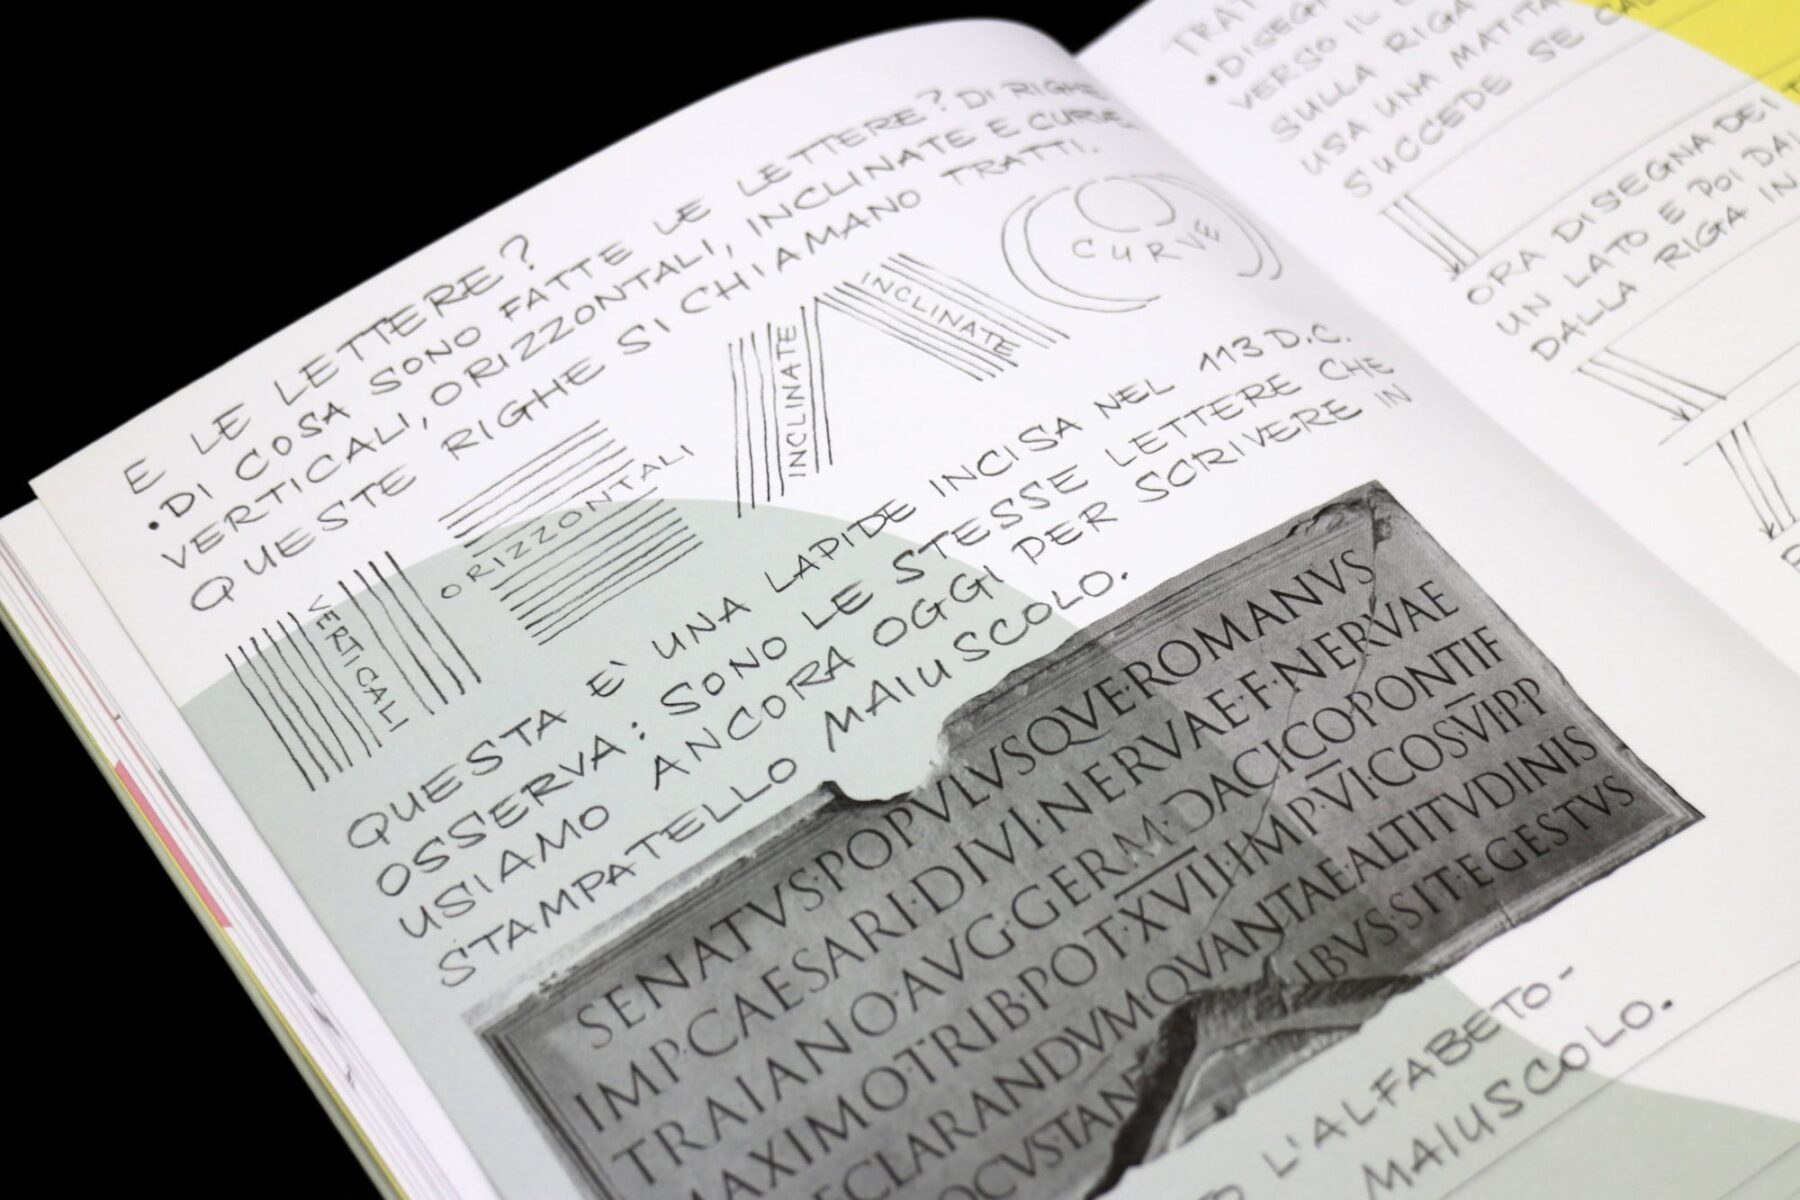 E LE LETTERE?
•DI COSA SONO FATTE LE LETTERE? DI RIGHE
VERTICALI, ORIZZONTALI, INCLINATE E CURVE.
QUESTE RIGHE SI CHIAMANO TRATTI.
VERTICALI
ORIZZONTALI
INCLINATE
INCLINATE
CURVE
QUESTA E' UNA LAPIDE INCISA NEL 113 D.C.
OSSERVA: SONO LE STESSE LETTERE CHE
USIAMO ANCORA OGGI PER SCRIVERE IN
STAMPATELLO MAIUSCOLO.
SENATVS·POPVLVSQVE·ROMANVS
IMP·CAESARI·DIVI·NERVAE·F·NERVAE
TRAIANO·AVG·GERM·DACICO·PONTIF
MAXIMO·TRIB·POT·XVII·IMP·VI·COS·VI·P·P
DECLARANDVM·QVANTAE·ALTITVDINIS
IBVS·SIT·EGESTVS
L'ALFABETO-
MAIUSCOLO.
•DISEGN
VERSO IL
SULLA RIGA
USA UNA MATITA
SUCCEDE SE
ORA DISEGNA DEI
UN LATO E POI DAL
DALLA RIGA IN